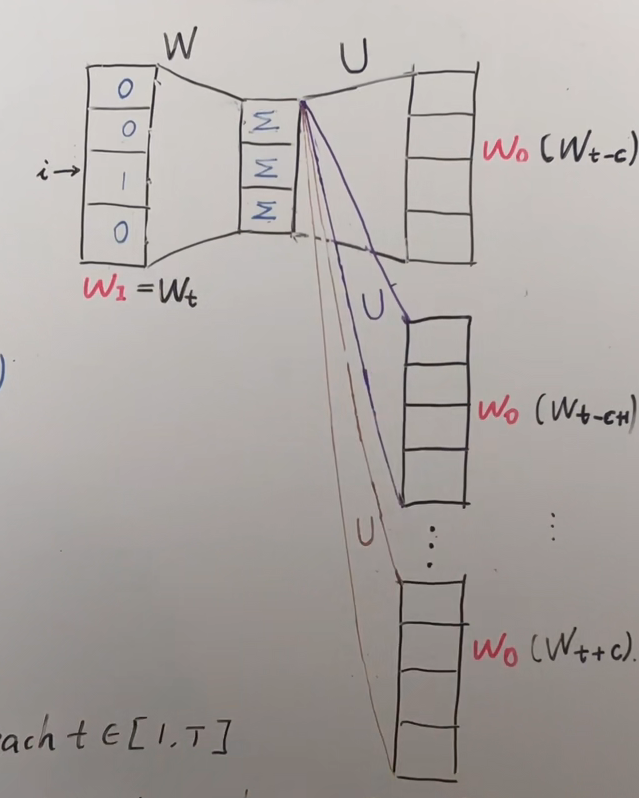 W
U
0
0
i → 1
0
Σ
Σ
Σ
W_I = W_t
W_0 (W_{t-c})
U
W_0 (W_{t-c+1})
)
⋮ ⋮
U
W_0 (W_{t+c}).
ach t ∈ [1,T]